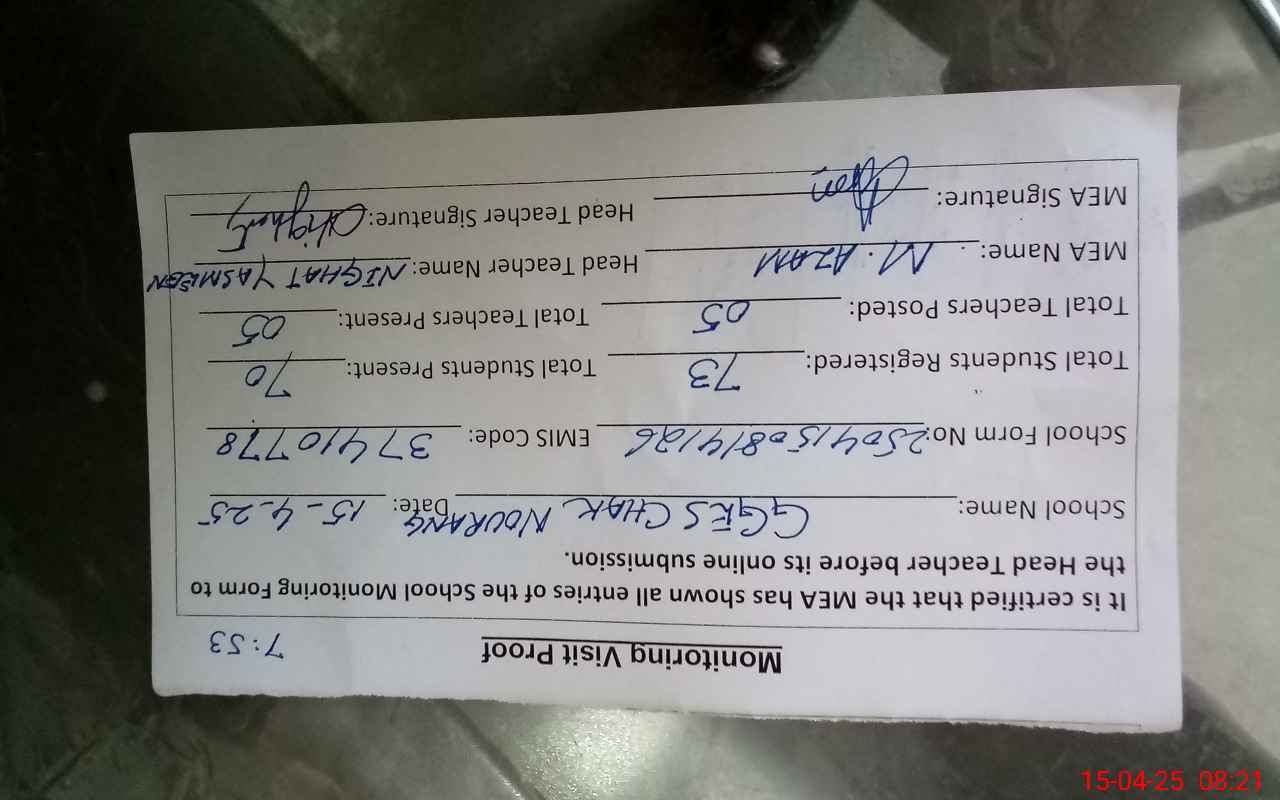 Monitoring Visit Proof
7:53
It is certified that the MEA has shown all entries of the School Monitoring Form to
the Head Teacher before its online submission.
School Name: GGES CHAK NOURANG Date: 15-4-25
School Form No: 2504150814126 EMIS Code: 37410778
Total Students Registered: 73 Total Students Present: 70
Total Teachers Posted: 05 Total Teachers Present: 05
MEA Name: M. AZAM Head Teacher Name: NIGHAT YASMEEN
MEA Signature: Head Teacher Signature: Nighat
15-04-25 08:21